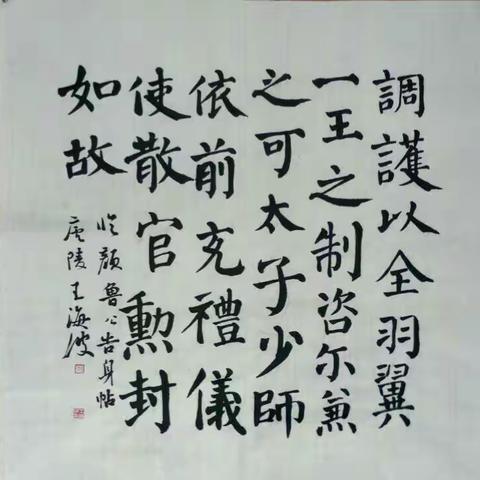 調護以全羽翼
一王之制咨尔兼
之可太子少師
依前充禮儀
使散官勳封
如故
临顏魯公告身帖
王海波